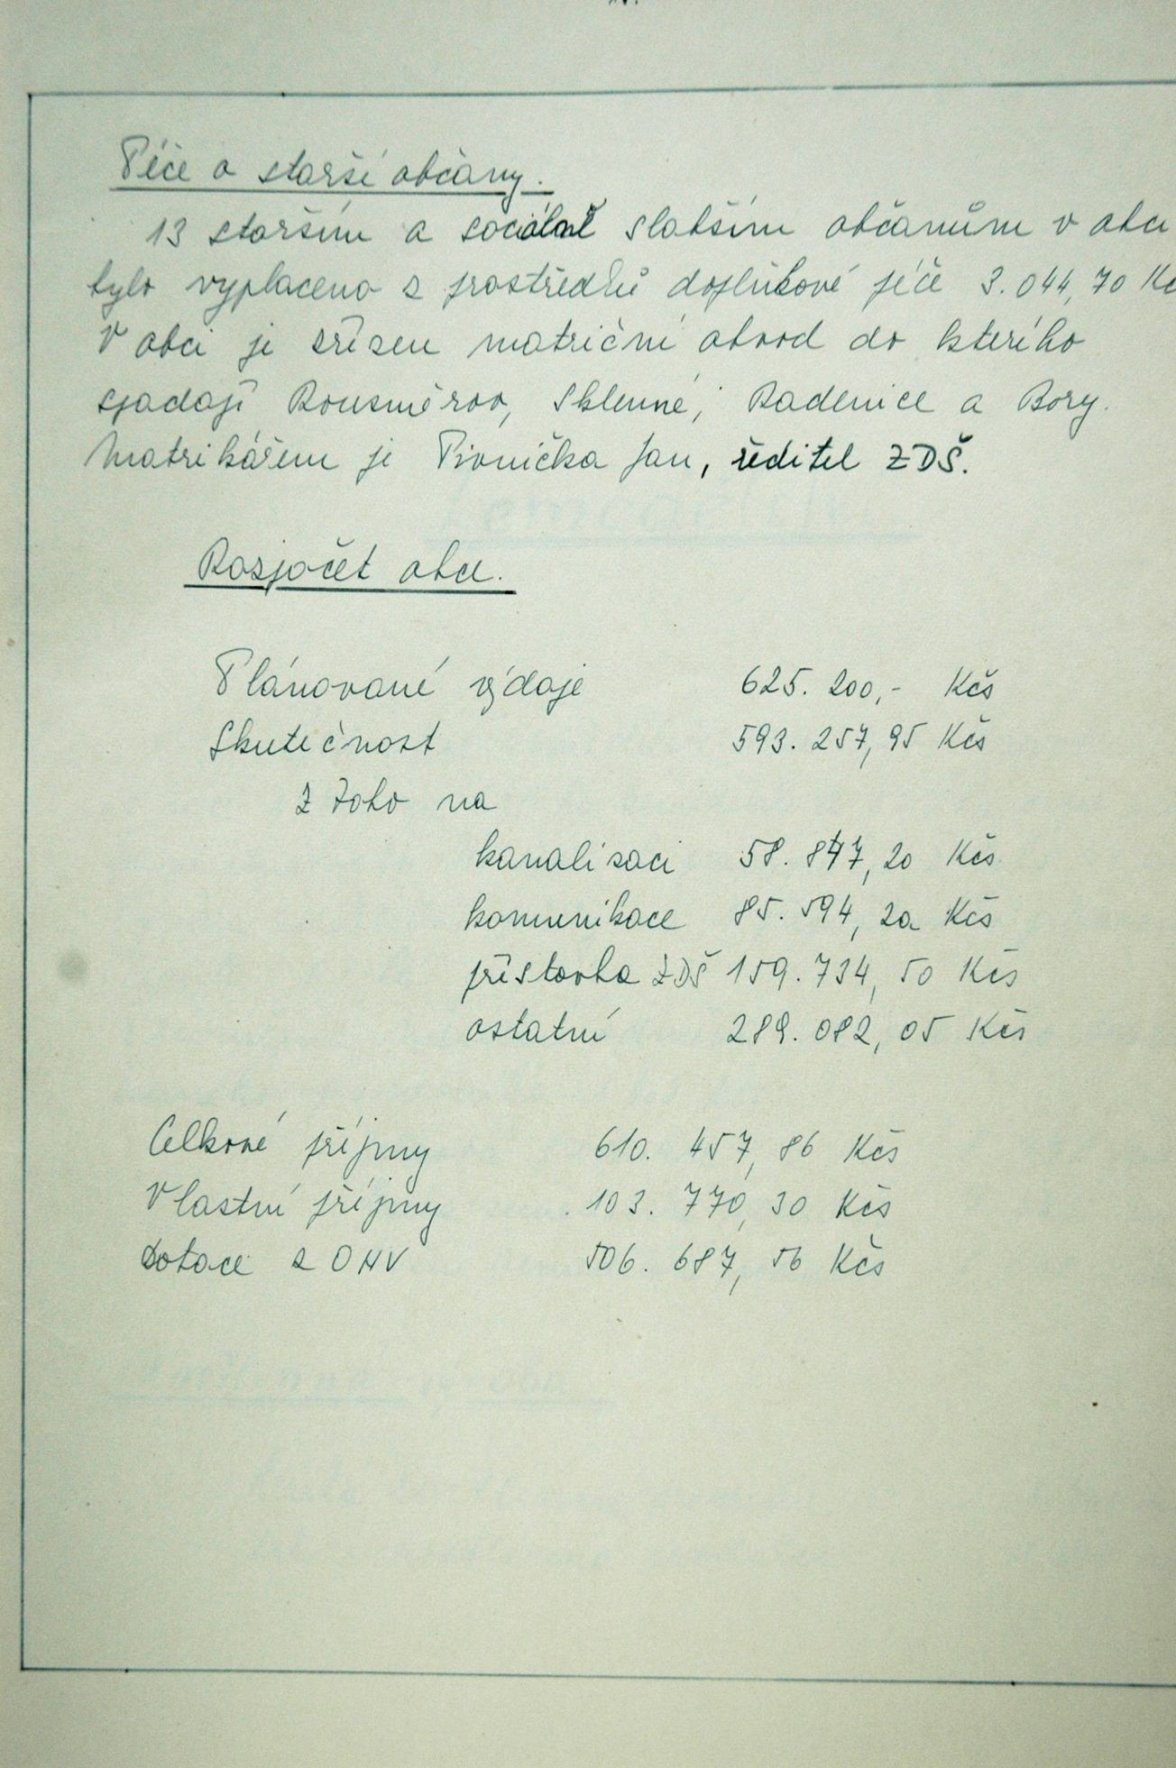 Péče o starší občany.
13 starším a sociálně slabším občanům v obci
bylo vyplaceno z prostředků doplňkové péče 3.044,70 Kč
V obci je zřízen matriční obvod do kterého
spadají Rousměrov, Sklenné, Radenice a Bory.
Matrikářem je Pivnička Jan, ředitel ZDŠ.
Rozpočet obce.
Plánované výdaje 625.200,- Kčs
Skutečnost 593.257,95 Kčs
Z toho na
kanalizaci 58.847,20 Kčs
komunikace 85.594,20 Kčs
přístavba ZDŠ 159.734,50 Kčs
ostatní 289.082,05 Kčs
Celkové příjmy 610.457,86 Kčs
Vlastní příjmy 103.770,30 Kčs
Dotace z ONV 506.687,56 Kčs